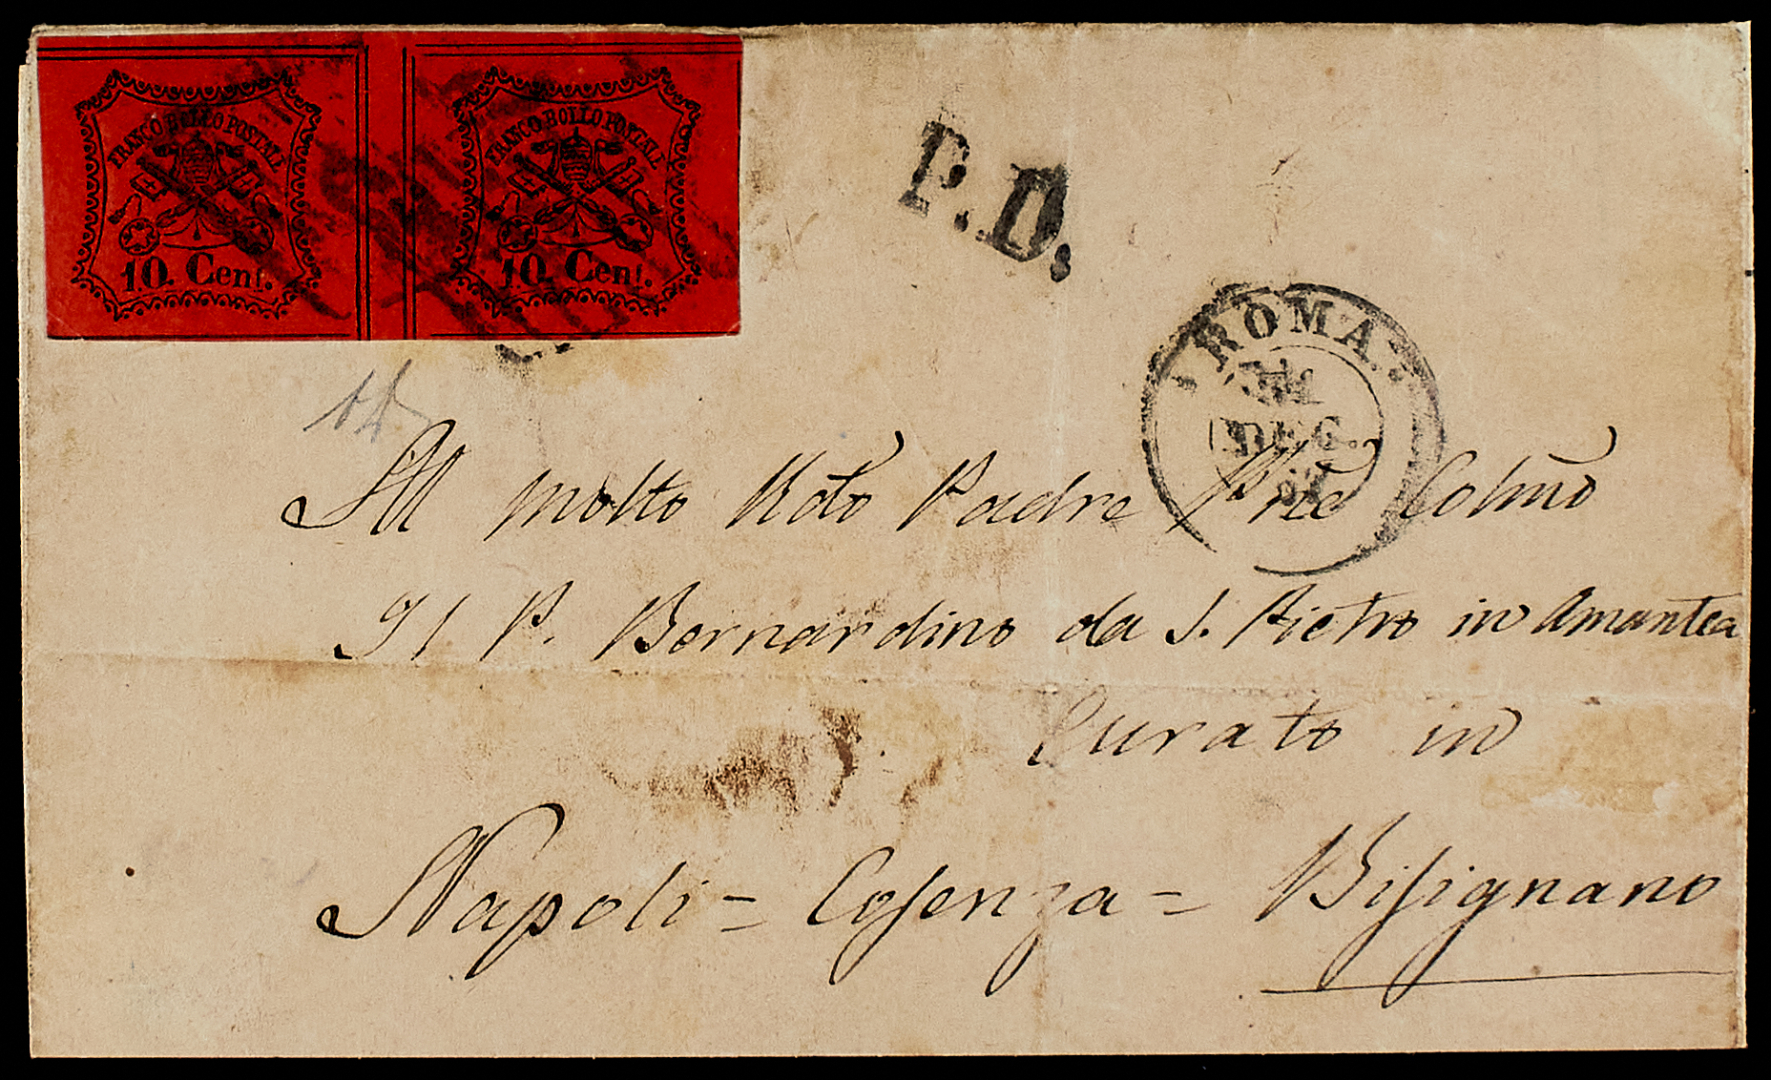 FRANCO BOLLO POSTALE
10. Cent.
FRANCO BOLLO POSTALE
10. Cent.
P.D.
ROMA
DEC.
Al molto Rdo Padre Pne Colmo
Il P. Bernardino da S. Pietro in Amantea
Curato in
Napoli = Cosenza = Bisignano